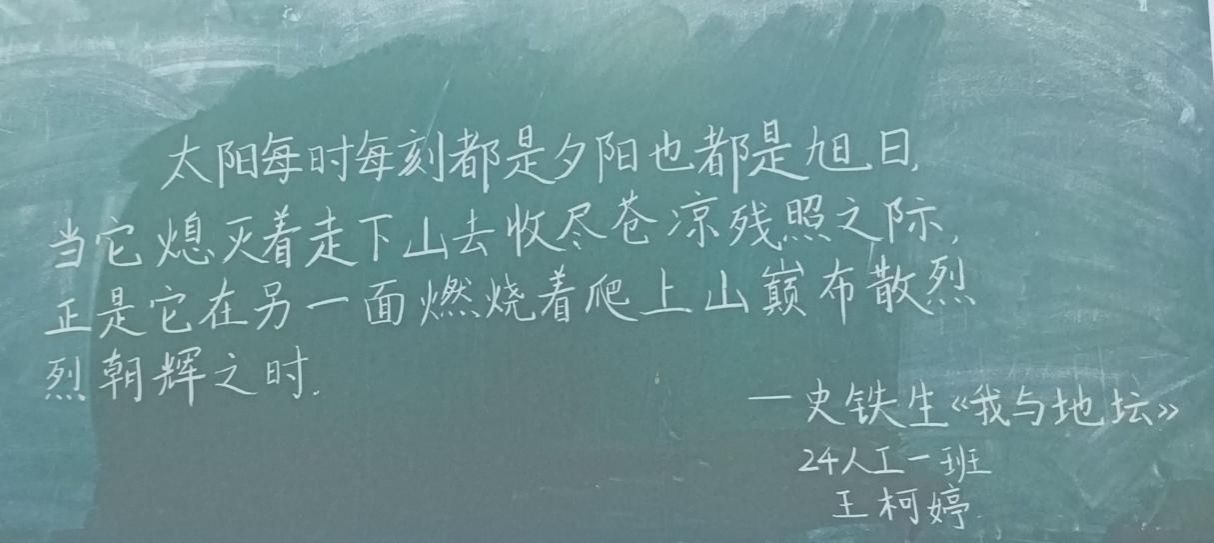 太阳每时每刻都是夕阳也都是旭日,
当它熄灭着走下山去收尽苍凉残照之际,
正是它在另一面燃烧着爬上山巅布散烈
烈朝辉之时.
—史铁生《我与地坛》
24人工一班
王柯婷